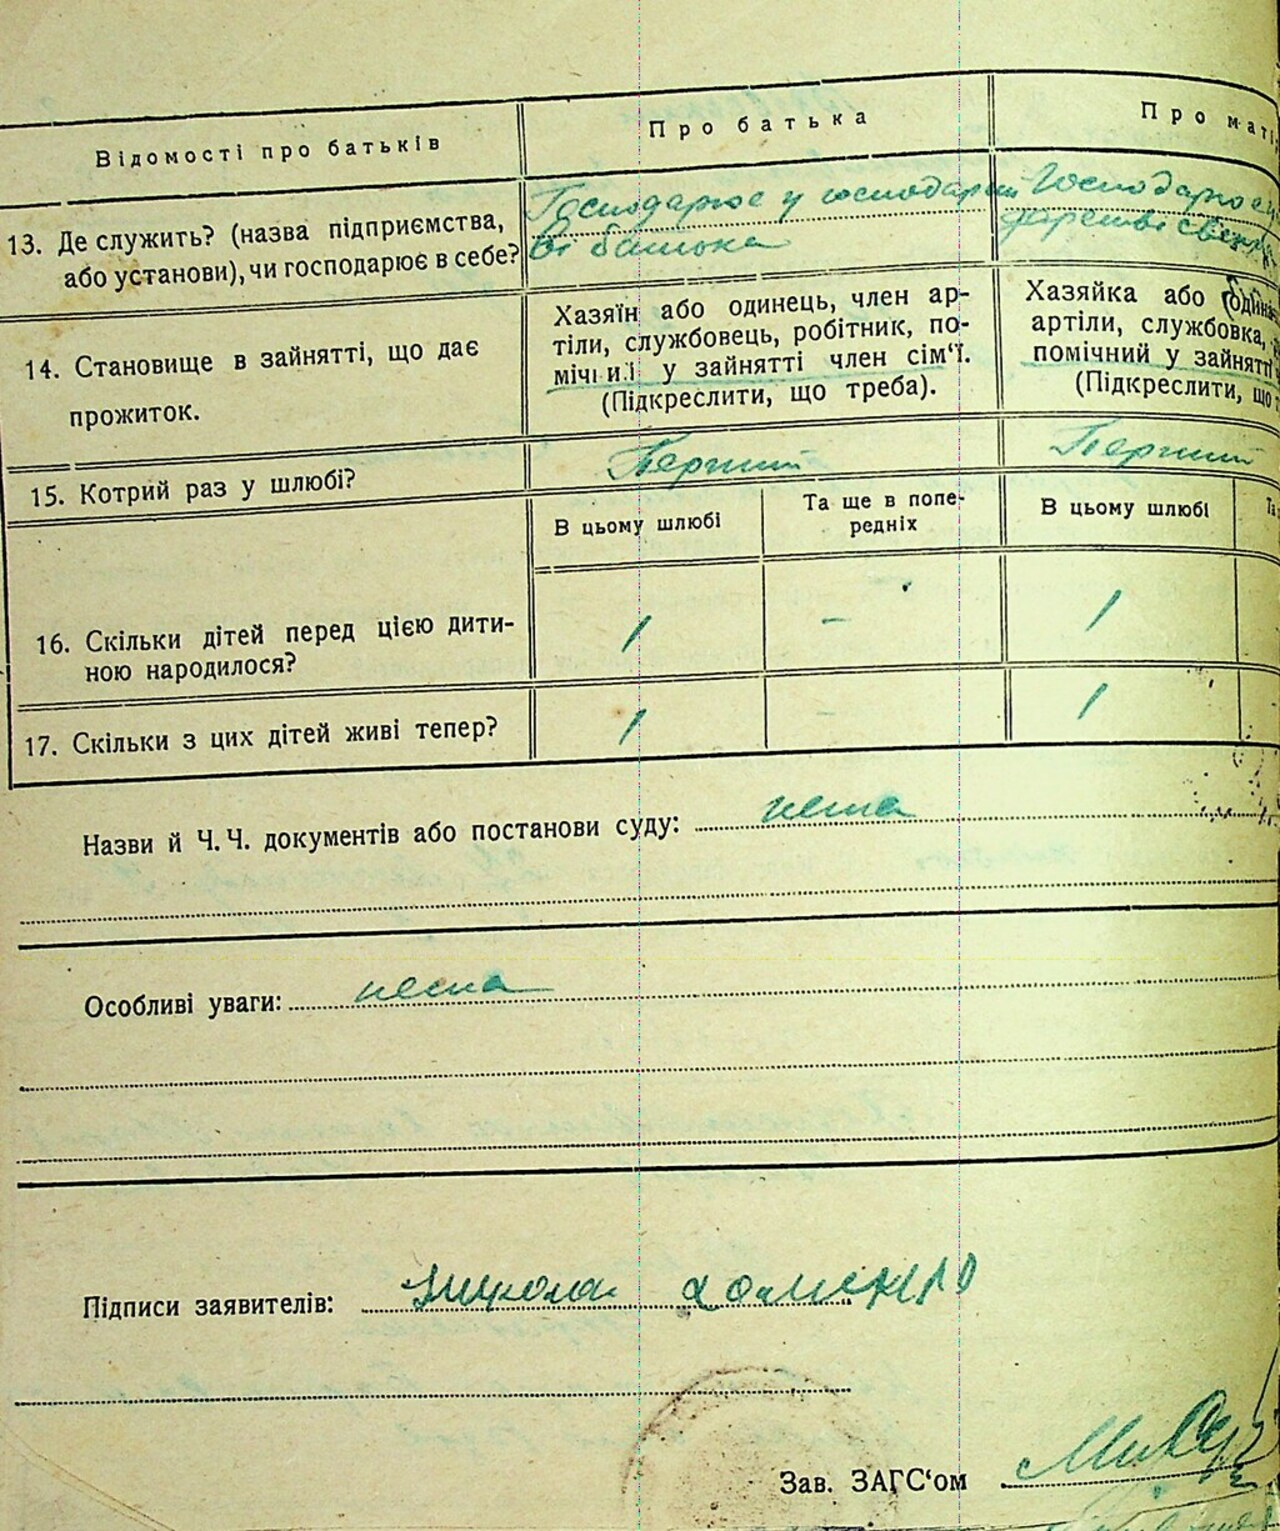 Відомості про батьків
Про батька
Про маті
13. Де служить? (назва підприємства,
або установи), чи господарює в себе?
Господарює у господарстві
батька
Господарює у
14. Становище в зайнятті, що дає
прожиток.
Хазяїн або одинець, член ар-
тіли, службовець, робітник, по-
мічний у зайнятті член сім‘ї.
(Підкреслити, що треба).
Хазяйка або одинач
артіли, службовка,
помічний у зайнятті
(Підкреслити, що т
15. Котрий раз у шлюбі?
Перший
Перший
В цьому шлюбі
Та ще в попе-
редніх
В цьому шлюбі
Та
16. Скільки дітей перед цією дити-
ною народилося?
1
-
1
17. Скільки з цих дітей живі тепер?
1
-
1
Назви й Ч. Ч. документів або постанови суду: нема
Особливі уваги: нема
Підписи заявителів: Микола Хоменко
Зав. ЗАГС‘ом